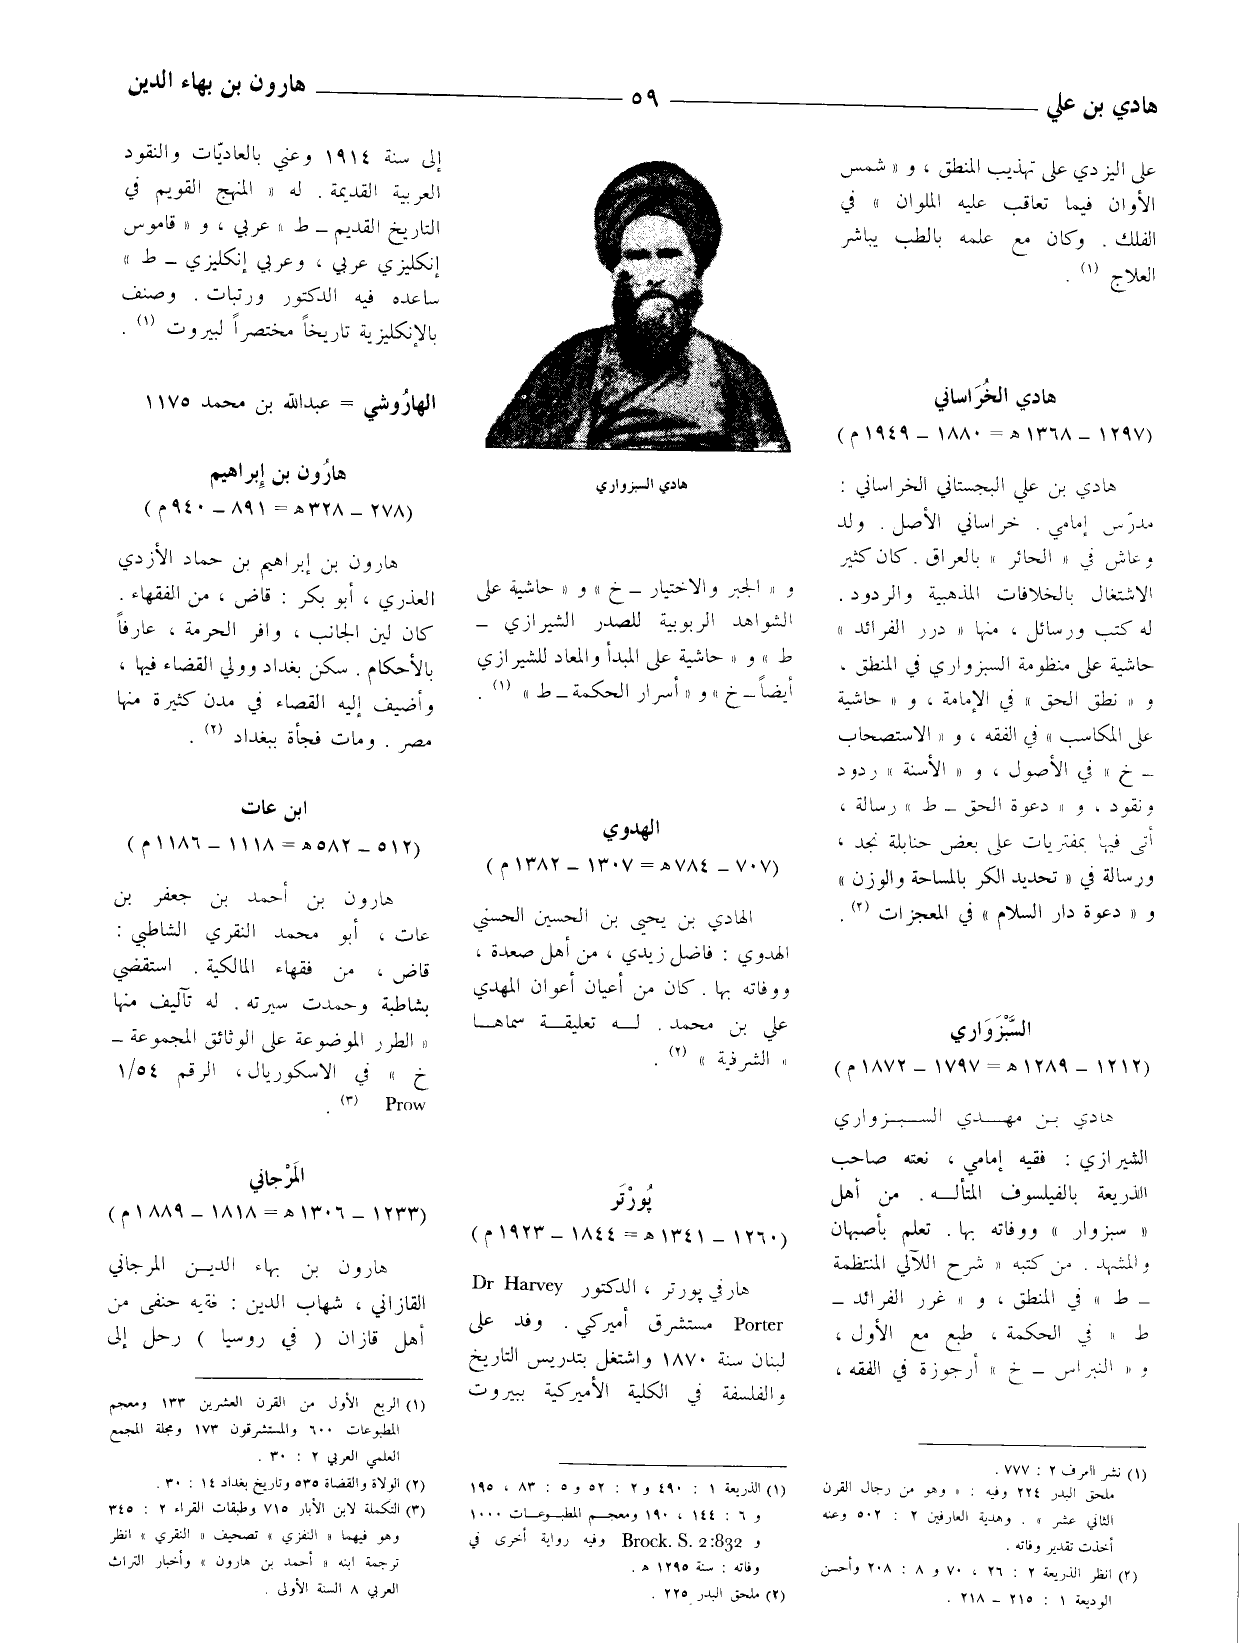 هادي بن علي
٥٩
هارون بن بهاء الدين
على اليزدي على تهذيب المنطق ، و « شمس
الأوان فيما تعاقب عليه الملوان » في
الفلك . وكان مع علمه بالطب يباشر
العلاج (١) .
هادي الخُرَاساني
(١٢٩٧ – ١٣٦٨ هـ = ١٨٨٠ – ١٩٤٩ م)
هادي بن علي البجستاني الخراساني :
مدرّس إمامي . خراساني الأصل . ولد
وعاش في « الحائر » بالعراق . كان كثير
الاشتغال بالخلافات المذهبية والردود .
له كتب ورسائل ، منها « درر الفرائد »
حاشية على منظومة السبزواري في المنطق ،
و « نطق الحق » في الإمامة ، و « حاشية
على المكاسب » في الفقه ، و « الاستصحاب
– خ » في الأصول ، و « الأسنة » ردود
ونقود ، و « دعوة الحق – ط » رسالة ،
أتى فيها بمفتريات على بعض حنابلة نجد ،
ورسالة في « تحديد الكر بالمساحة والوزن »
و « دعوة دار السلام » في المعجزات (٢) .
السَّبْزَوَاري
(١٢١٢ – ١٢٨٩ هـ = ١٧٩٧ – ١٨٧٢ م)
هادي بن مهدي السبزواري
الشيرازي : فقيه إمامي ، نعته صاحب
الذريعة بالفيلسوف المتأله . من أهل
« سبزوار » ووفاته بها . تعلم بأصبهان
والمشهد . من كتبه « شرح اللآلي المنتظمة
– ط » في المنطق ، و « غرر الفرائد –
ط » في الحكمة ، طبع مع الأول ،
و « النبراس – خ » أرجوزة في الفقه ،
(١) نشر العرف ٢ : ٧٧٧ .
ملحق البدر ٢٢٤ وفيه : « وهو من رجال القرن
الثاني عشر » . وهدية العارفين ٢ : ٥٠٢ وعنه
أخذت تقدير وفاته .
(٢) انظر الذريعة ٢ : ٢٦ ، ٧٠ و ٨ : ٢٠٨ وأحسن
الوديعة ١ : ٢١٥ – ٢١٨ .
هادي السبزواري
و « الجبر والاختيار – خ » و « حاشية على
الشواهد الربوبية للصدر الشيرازي –
ط » و « حاشية على المبدأ والمعاد للشيرازي
أيضاً – خ » و « أسرار الحكمة – ط » (١) .
الهدوي
(٧٠٧ – ٧٨٤ هـ = ١٣٠٧ – ١٣٨٢ م)
الهادي بن يحيى بن الحسين الحسني
الهدوي : فاضل زيدي ، من أهل صعدة ،
ووفاته بها . كان من أعيان أعوان المهدي
علي بن محمد . له تعليقة سماها
« الشرفية » (٢) .
پُورْتَر
(١٢٦٠ – ١٣٤١ هـ = ١٨٤٤ – ١٩٢٣ م)
هارفي پورتر ، الدكتور Dr Harvey
Porter مستشرق أميركي . وفد على
لبنان سنة ١٨٧٠ واشتغل بتدريس التاريخ
والفلسفة في الكلية الأميركية ببيروت
(١) الذريعة ١ : ٤٩٠ و ٢ : ٥٢ و ٥ : ٨٣ ، ١٩٥
و ٦ : ١٤٤ ، ١٩٠ ومعجم المطبوعات ١٠٠٠
و Brock. S. 2:832 وفيه رواية أخرى في
وفاته : سنة ١٢٩٥ هـ .
(٢) ملحق البدر ٢٢٥ .
إلى سنة ١٩١٤ وعني بالعاديّات والنقود
العربية القديمة . له « المنهج القويم في
التاريخ القديم – ط » عربي ، و « قاموس
إنكليزي عربي ، وعربي إنكليزي – ط »
ساعده فيه الدكتور ورتبات . وصنف
بالإنكليزية تاريخاً مختصراً لبيروت (١) .
الهارُوشي = عبدالله بن محمد ١١٧٥
هارُون بن إبراهيم
(٢٧٨ – ٣٢٨ هـ = ٨٩١ – ٩٤٠ م)
هارون بن إبراهيم بن حماد الأزدي
العذري ، أبو بكر : قاض ، من الفقهاء .
كان لين الجانب ، وافر الحرمة ، عارفاً
بالأحكام . سكن بغداد وولي القضاء فيها ،
وأضيف إليه القضاء في مدن كثيرة منها
مصر . ومات فجأة ببغداد (٢) .
ابن عات
(٥١٢ – ٥٨٢ هـ = ١١١٨ – ١١٨٦ م)
هارون بن أحمد بن جعفر بن
عات ، أبو محمد النقري الشاطبي :
قاض ، من فقهاء المالكية . استقضي
بشاطبة وحمدت سيرته . له تآليف منها
« الطرر الموضوعة على الوثائق المجموعة –
خ » في الاسكوريال ، الرقم ١/٥٤
Prow (٣) .
المَرْجاني
(١٢٣٣ – ١٣٠٦ هـ = ١٨١٨ – ١٨٨٩ م)
هارون بن بهاء الدين المرجاني
القازاني ، شهاب الدين : فقيه حنفي من
أهل قازان ( في روسيا ) رحل إلى
(١) الربع الأول من القرن العشرين ١٣٣ ومعجم
المطبوعات ٦٠٠ والمستشرقون ١٧٣ ومجلة المجمع
العلمي العربي ٢ : ٣٠ .
(٢) الولاة والقضاة ٥٣٥ وتاريخ بغداد ١٤ : ٣٠ .
(٣) التكملة لابن الأبار ٧١٥ وطبقات القراء ٢ : ٣٤٥
وهو فيهما « النفزي » تصحيف « النقري » انظر
ترجمة ابنه « أحمد بن هارون » وأخبار التراث
العربي ٨ السنة الأولى .